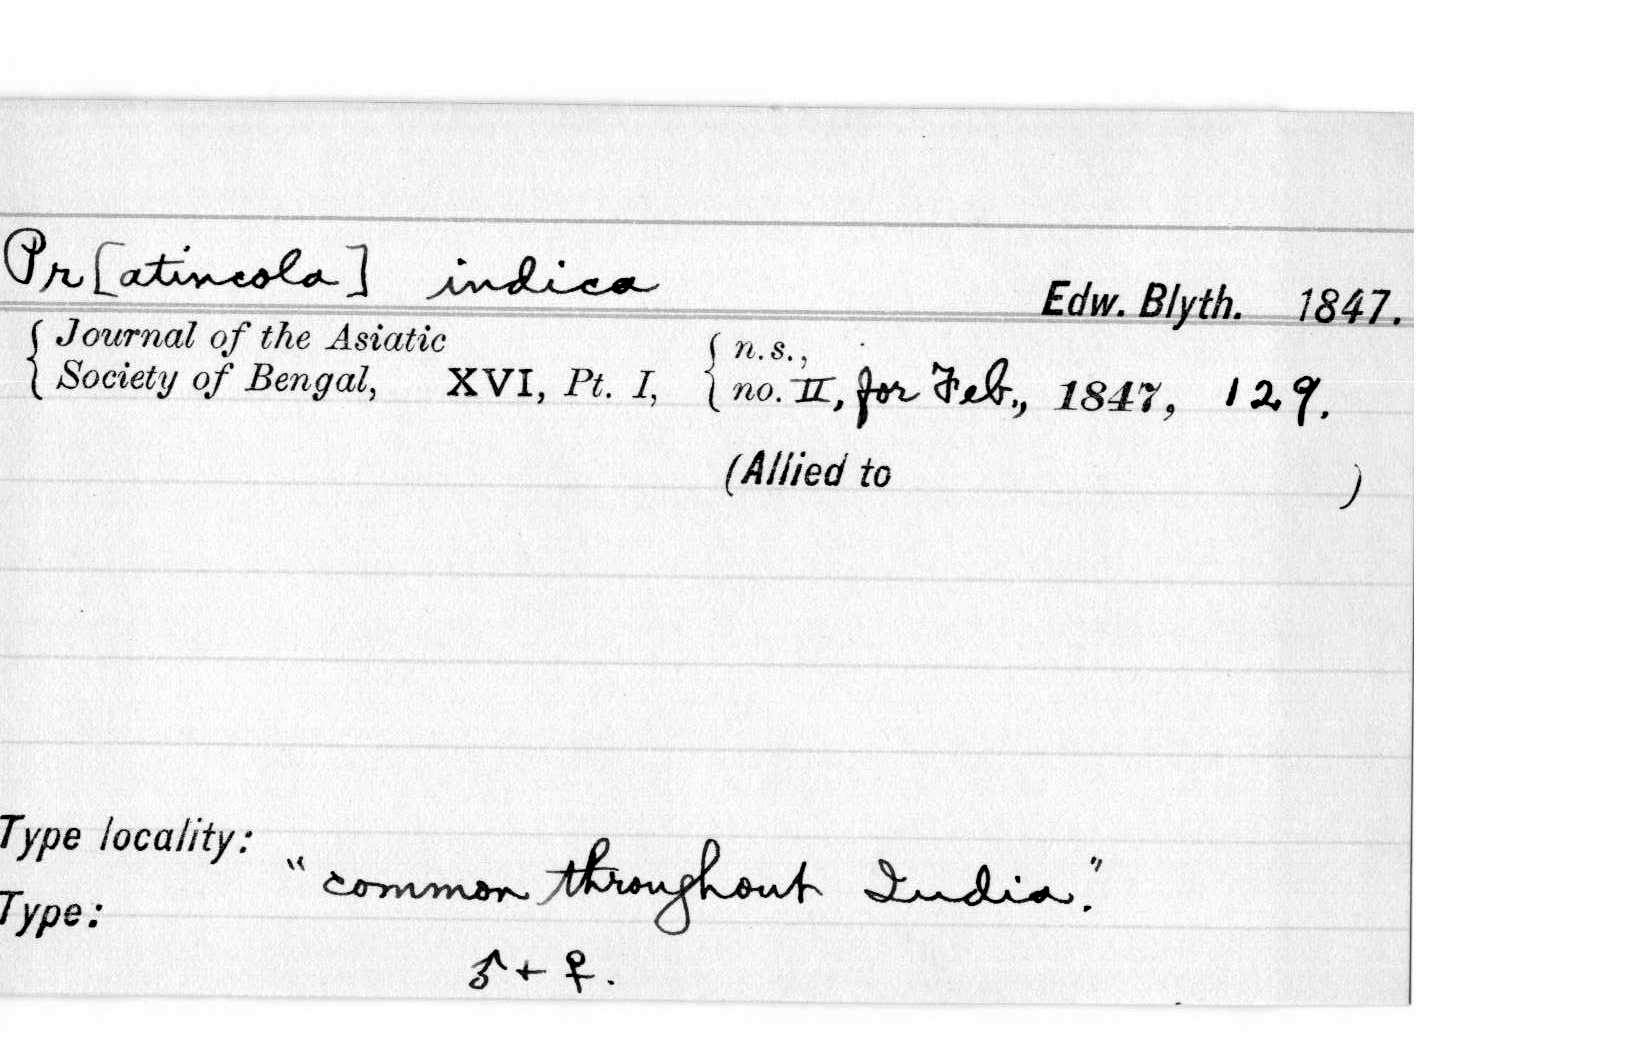 Pr[atincola] indica Edw. Blyth. 1847.
{ Journal of the Asiatic { n.s.,
{ Society of Bengal, XVI, Pt. I, { no. II, for Feb., 1847, 129.
(Allied to )
Type locality:
" common throughout India."
Type:
♂ + ♀.